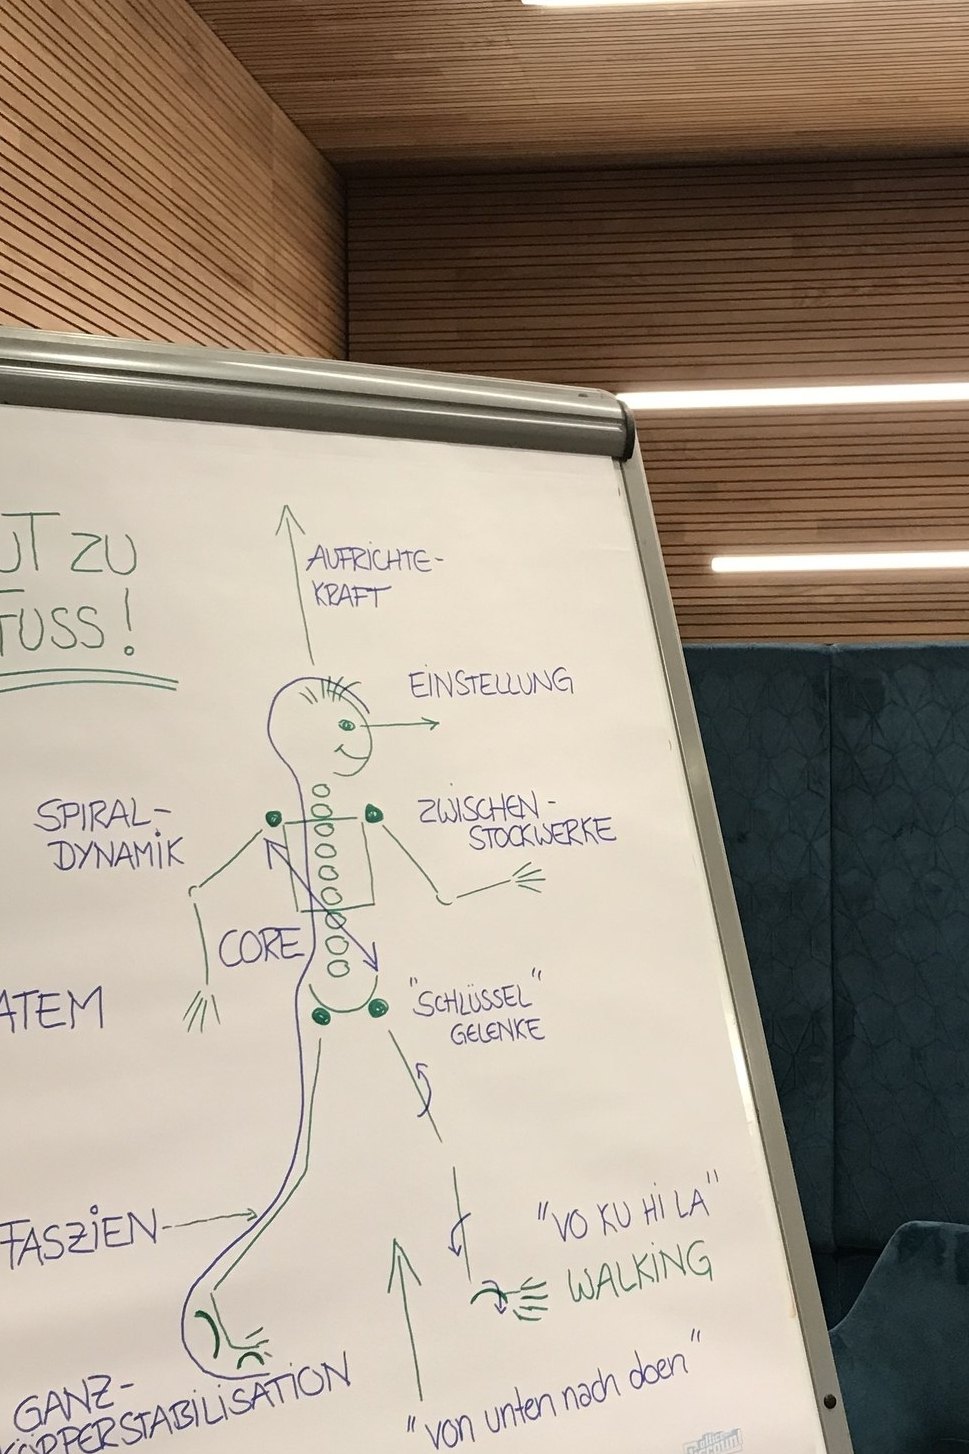 UT ZU
FUSS!
AUFRICHTE-
KRAFT
EINSTELLUNG
SPIRAL-
DYNAMIK
ZWISCHEN-
STOCKWERKE
CORE
ATEM
"SCHLÜSSEL"
GELENKE
FASZiEN
"VO KU Hi LA"
WALKING
GANZ-
KÖRPERSTABiLiSATiON
"von unten nach oben"